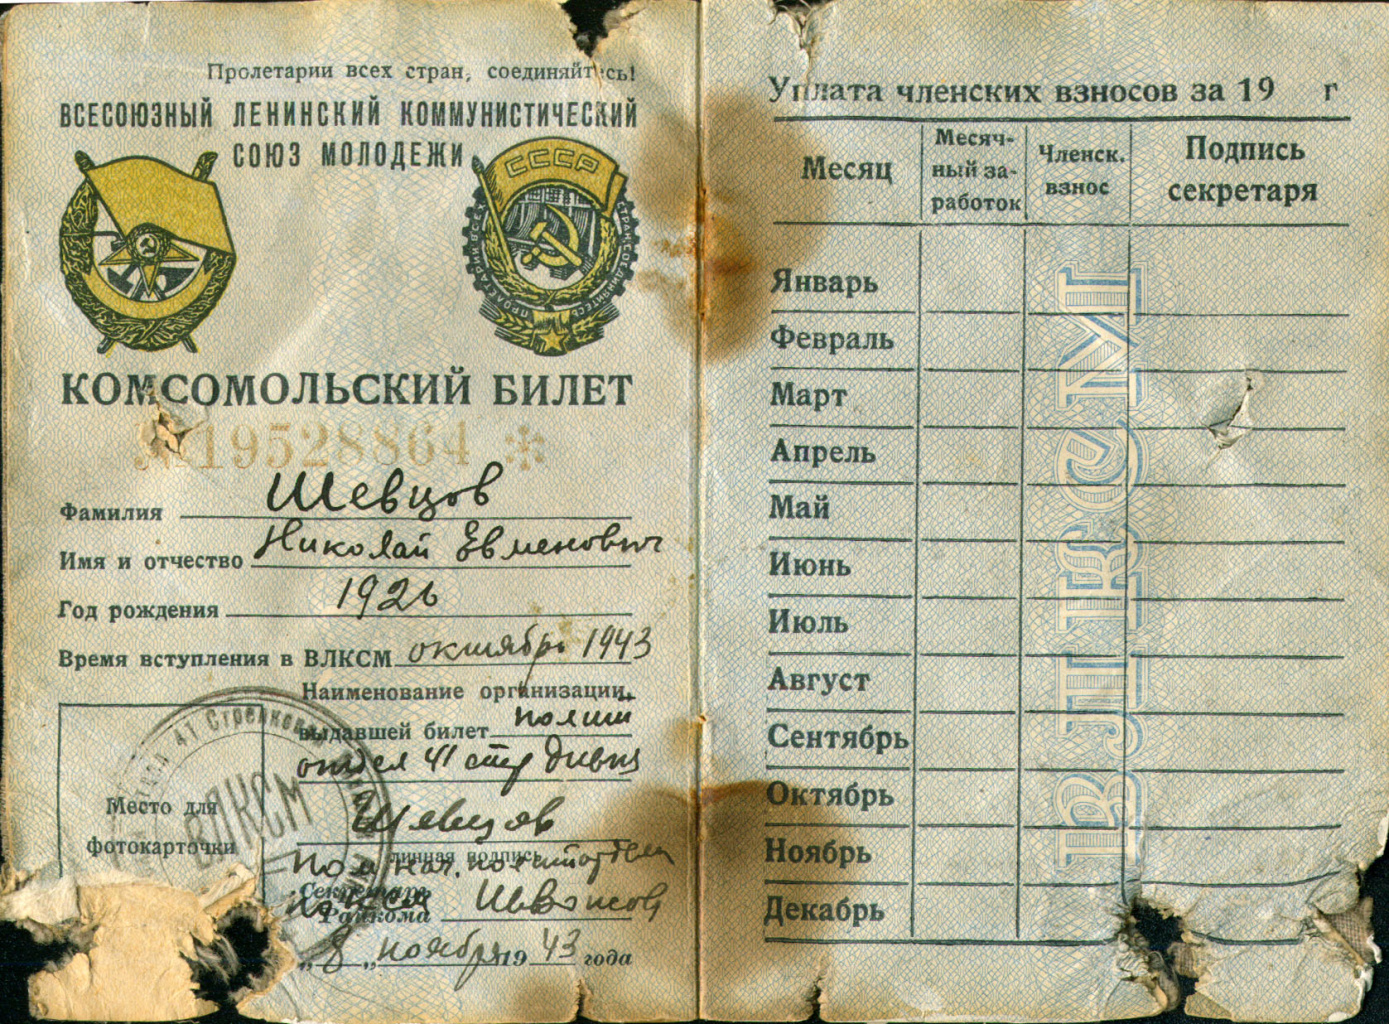 Пролетарии всех стран, соединяйтесь!
ВСЕСОЮЗНЫЙ ЛЕНИНСКИЙ КОММУНИСТИЧЕСКИЙ
СОЮЗ МОЛОДЕЖИ
СССР
КОМСОМОЛЬСКИЙ БИЛЕТ
№ 19528864 *
Фамилия Шевцов
Имя и отчество Николай Евменович
Год рождения 1926
Время вступления в ВЛКСМ октябрь 1943
Наименование организации,
выдавшей билет полит
отдел 41 стр дивиз
Место для
фотокарточки
41 Стрелковой
ВЛКСМ
Шевцов
Личная подпись
Пом нач. политотдела
Секретарь
Райкома
„8„ ноября 1943 года
Уплата членских взносов за 19 г
Месяц
Месяч-
ный за-
работок
Членск.
взнос
Подпись
секретаря
Январь
Февраль
Март
Апрель
Май
Июнь
Июль
Август
Сентябрь
Октябрь
Ноябрь
Декабрь
ВЛКСМ